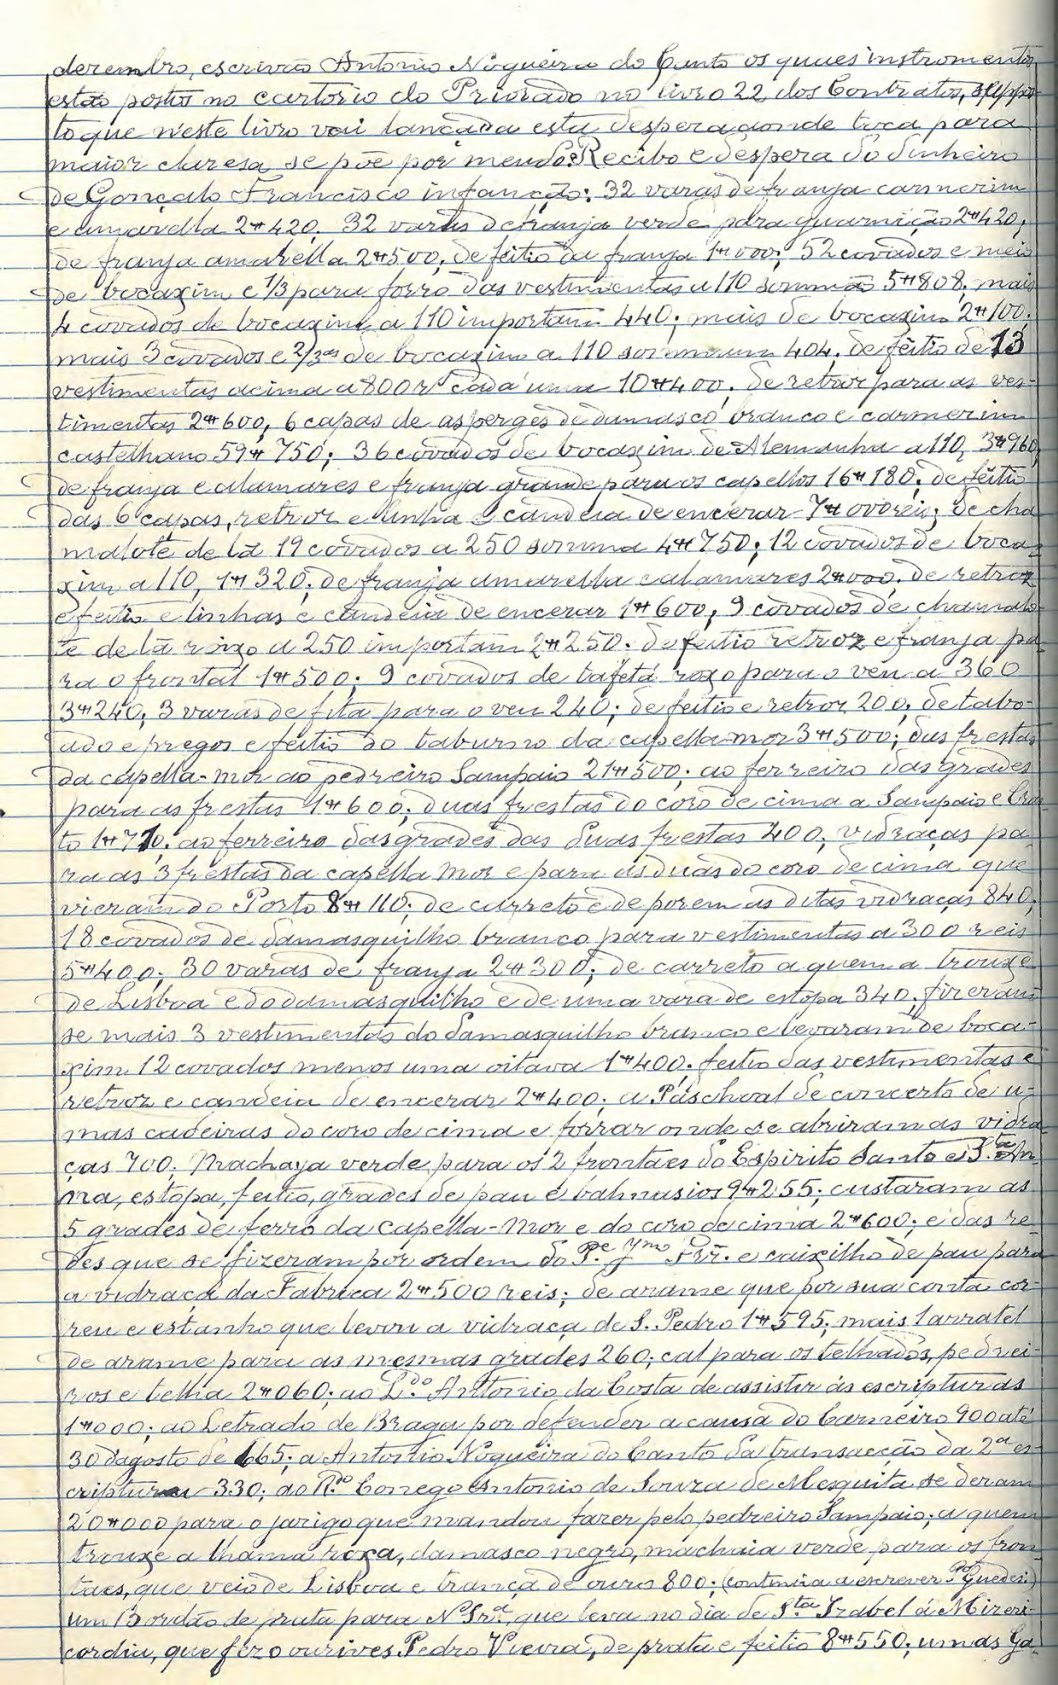 dezembro, escrivão Antonio Nogueira do Canto os quaes instromentos
estão postos no cartorio do Priorado no livro 22 dos Contratos,
to que n'este livro vai lançada esta despeza aonde toca para
maior claresa se põe por meudo: Recibo e despeza do dinheiro
de Gonçalo Francisco infanção: 32 varas de franja carmezim
e amarella 2#420, 32 varas de franja verde para guarnição 2#420;
de franja amarella 2#500; de feitio da franja 1#000; 52 covados e meio
de bocaxim e 1/3 para forro das vestimentas a 110 sommão 5#808, mais
4 covados de bocaxim a 110 importam 440; mais de bocaxim 2#100;
mais 3 covados e 2/3os de bocaxim a 110 sommam 404; de feitio de 13
vestimentas acima a 800 rs cada uma 10#400; de retroz para as ves-
timentas 2#600, 6 capas de asperges de damasco branco e carmezim
castelhano 59#750; 36 covados de bocaxim de Alemanha a 110, 3#960,
de franja e alamares e franja grande para os capellos 16#180; de feitio
das 6 capas, retroz e linha e candeia de encerar 7#000 reis; de cha
malote de lã 19 covados a 250 somma 4#750; 12 covados de boca-
xim a 110, 1#320; de franja amarella e alamares 2#000. de retroz
e feitio e linhas e candeia de encerar 1#600; 9 covados de chamalo
te de lã roixo a 250 importam 2#250. de feitio retroz e franja pa
ra o frontal 1#500; 9 covados de tafetá roxo para o veu a 360
3#240; 3 varas de fita para o veu 240; de feitio e retroz 200; de tabo-
ado e pregos e feitio do taburno da capella-mor 3#500; das frestas
da capella-mor ao pedreiro Sampaio 21#500; ao ferreiro das grades
para as frestas 1#600; duas frestas do coro de cima a Sampaio e
to 1#710; ao ferreiro das grades das duas frestas 400; vidraças pa
ra as 3 frestas da capella mor e para as duas do coro de cima que
vieram do Porto 8#110; de carreto e de porem as ditas vidraças 840;
18 covados de damasquilho branco para vestimentas a 300 reis
5#400; 30 varas de franja 2#300; de carreto a quem a trouxe
de Lisboa e do damasquilho e de uma vara de estopa 340; fizeram
se mais 3 vestimentas do damasquilho branco e levaram de boca-
xim 12 covados menos uma oitava 1#400; feitio das vestimentas e
retroz e candeia de encerar 2#400; a Paschoal de concerto de u-
mas cadeiras do coro de cima e forrar onde se abriram as vidra
ças 700; Machaya verde para os 2 frontaes do Espirito Santo e S.ta An
na, estopa, feitio, grades de pau e balnusios 9#255; custaram as
5 grades de ferro da capella-mor e do coro de cima 2#600; e das re
des que se fizeram por ordem do P.e e caixilho de pau para
a vidraça da Fabrica 2#500 reis; de arame que por sua conta cor-
reu e estanho que levou a vidraça de S. Pedro 1#595; mais 1 arratel
de arame para as mesmas grades 260; cal para os telhados, pedrei-
ros e telha 2#060; ao L.do Antonio da Costa de assistir ás escripturas
1#000; ao Letrado de Braga por defender a causa do Carneiro 900 até
30 d'agosto de 665; a Antonio Nogueira do Canto da transacção da 2ª es-
criptura 330; ao R.do Conego Antonio de Souza de Mesquita se deram
20#000 para o jazigo que mandou fazer pelo pedreiro Sampaio; a quem
trouxe a lhama roxa, damasco negro, machaia verde para os fron
taes, que veio de Lisboa e trança de ouro 800; (continua a escrever P.o Guedes)
um bordão de prata para N.ª Sr.ª que leva no dia de S.ta Izabel á Mizeri-
cordia, que fez o ourives Pedro Vieira, de prata e feitio 8#550; umas Ga-